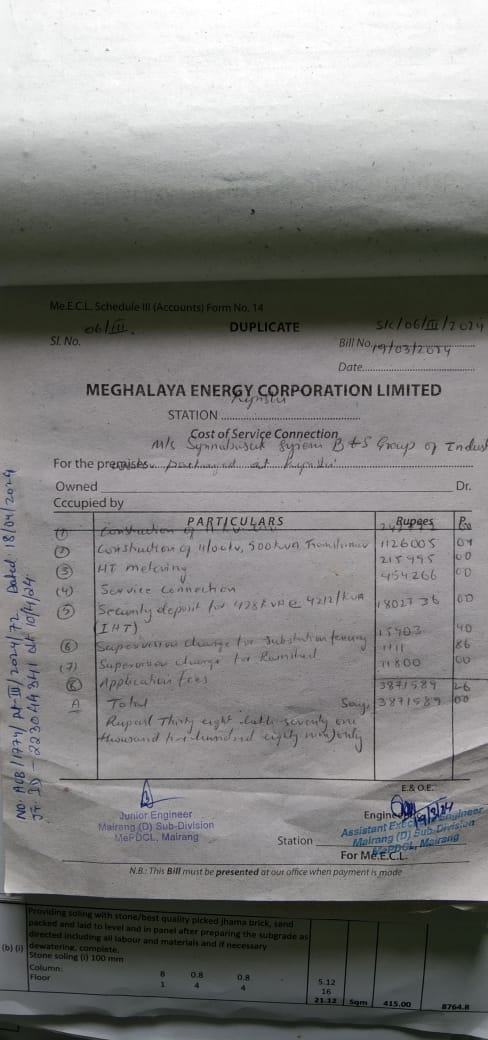 Me.E.C.L. Schedule III (Accounts) Form No. 14
06/III.
DUPLICATE
SC/06/III/2024
Sl. No.
Bill No. 19/03/2024
Date
MEGHALAYA ENERGY CORPORATION LIMITED
STATION
Cost of Service Connection
M/s B & S Group of Indust
For the premises at
Owned Dr.
Cccupied by
PARTICULARS Rupees Ps
(1) Construction of
(2) Construction of 11/0.4kv, 500KVA Transformer 1126005 04
(3) HT metering 215995 00
(4) Service connection 454266 00
(5) Security deposit for 428KVA @ 4212/KVA 1802736 00
(IHT)
(6) Supervision charge for Substation fencing 15903 40
(7) Supervision charge for 1111 86
(8) Application fees 11800 00
3871589 26
A Total Say, 3871589 00
Rupees Thirty eight lakhs seventy one
thousand five hundred eighty nine) only
No: ACB/1774/Pt-III/2024/72 Dated: 18/04/2024
Jr. ID - 223044341 dt 10/4/24
E.& O.E.
Junior Engineer
Mairang (D) Sub-Division
MePDCL, Mairang
Engineer
19/3/24
Assistant Executive Engineer
Mairang (D) Sub Division
MePDCL, Mairang
Station
For Me.E.C.L.
N.B.: This Bill must be presented at our office when payment is made
Providing soling with stone/best quality picked jhama brick, sand
packed and laid to level and in panel after preparing the subgrade as
directed including all labour and materials and if necessary
(b) (i) dewatering, complete.
Stone soling (i) 100 mm
Column: 8 0.8 0.8 5.12
Floor 1 4 4 16
21.12 Sqm 415.00 8764.8